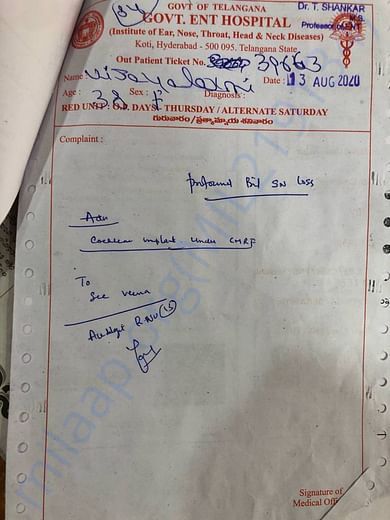 GOVT OF TELANGANA
Dr. T. SHANKAR
M.S.
Professor of ENT
GOVT. ENT HOSPITAL
(Institute of Ear, Nose, Throat, Head & Neck Diseases)
Koti, Hyderabad - 500 095. Telangana State
Out Patient Ticket No. 39663
Name Vijayalaxmi Date : 13 AUG 2020
Age : 38 Sex : F Diagnosis :
RED UNIT : O.P. DAYS : THURSDAY / ALTERNATE SATURDAY
గురువారం / ప్రత్యామ్నాయ శనివారం
Complaint :
profound Bil SN Loss
Adv
Cochlear implant under CMRF
To
See Veena
Signature of
Medical Offi